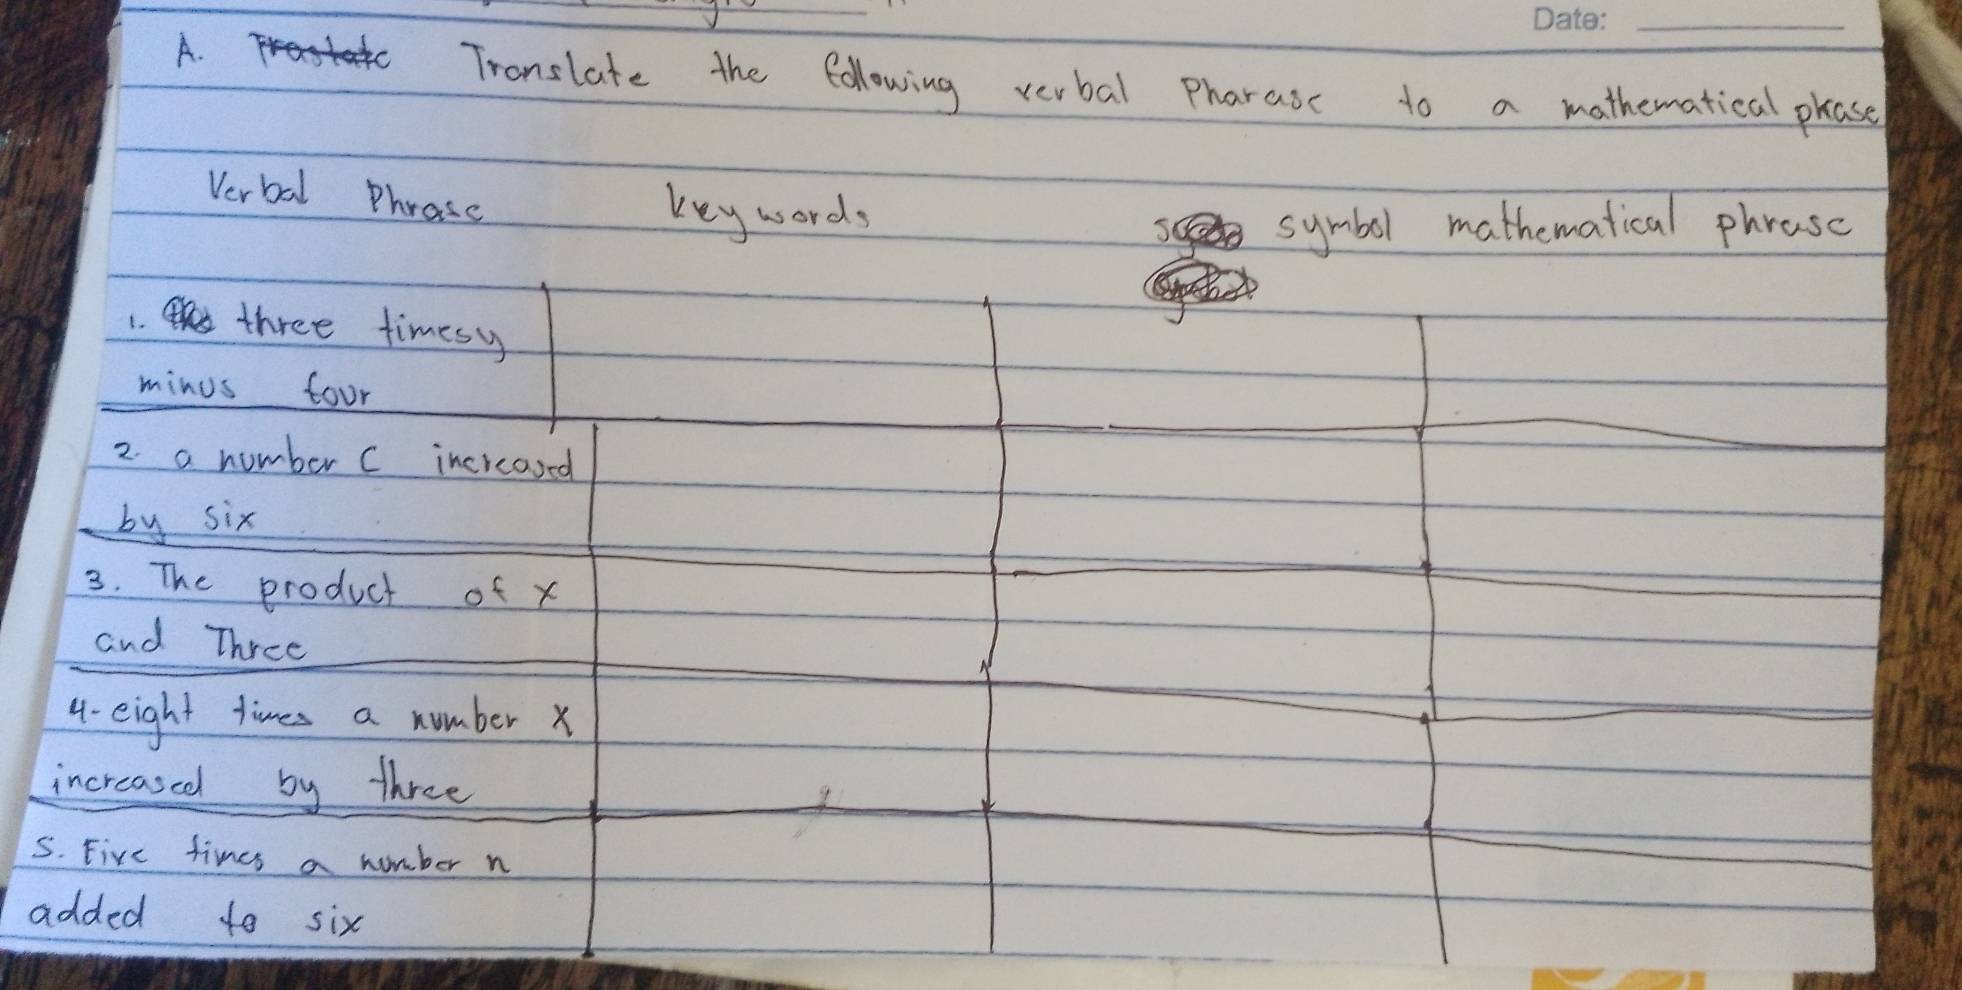 Date:
A. Translate the following verbal Pharase to a mathematical phrase
Verbal Phrase keywords symbol mathematical phrase
1. three timesy
minus four
2. a number C increased
by six
3. The product of x
and Three
4. eight times a number x
increased by three
5. Five times a number n
added to six